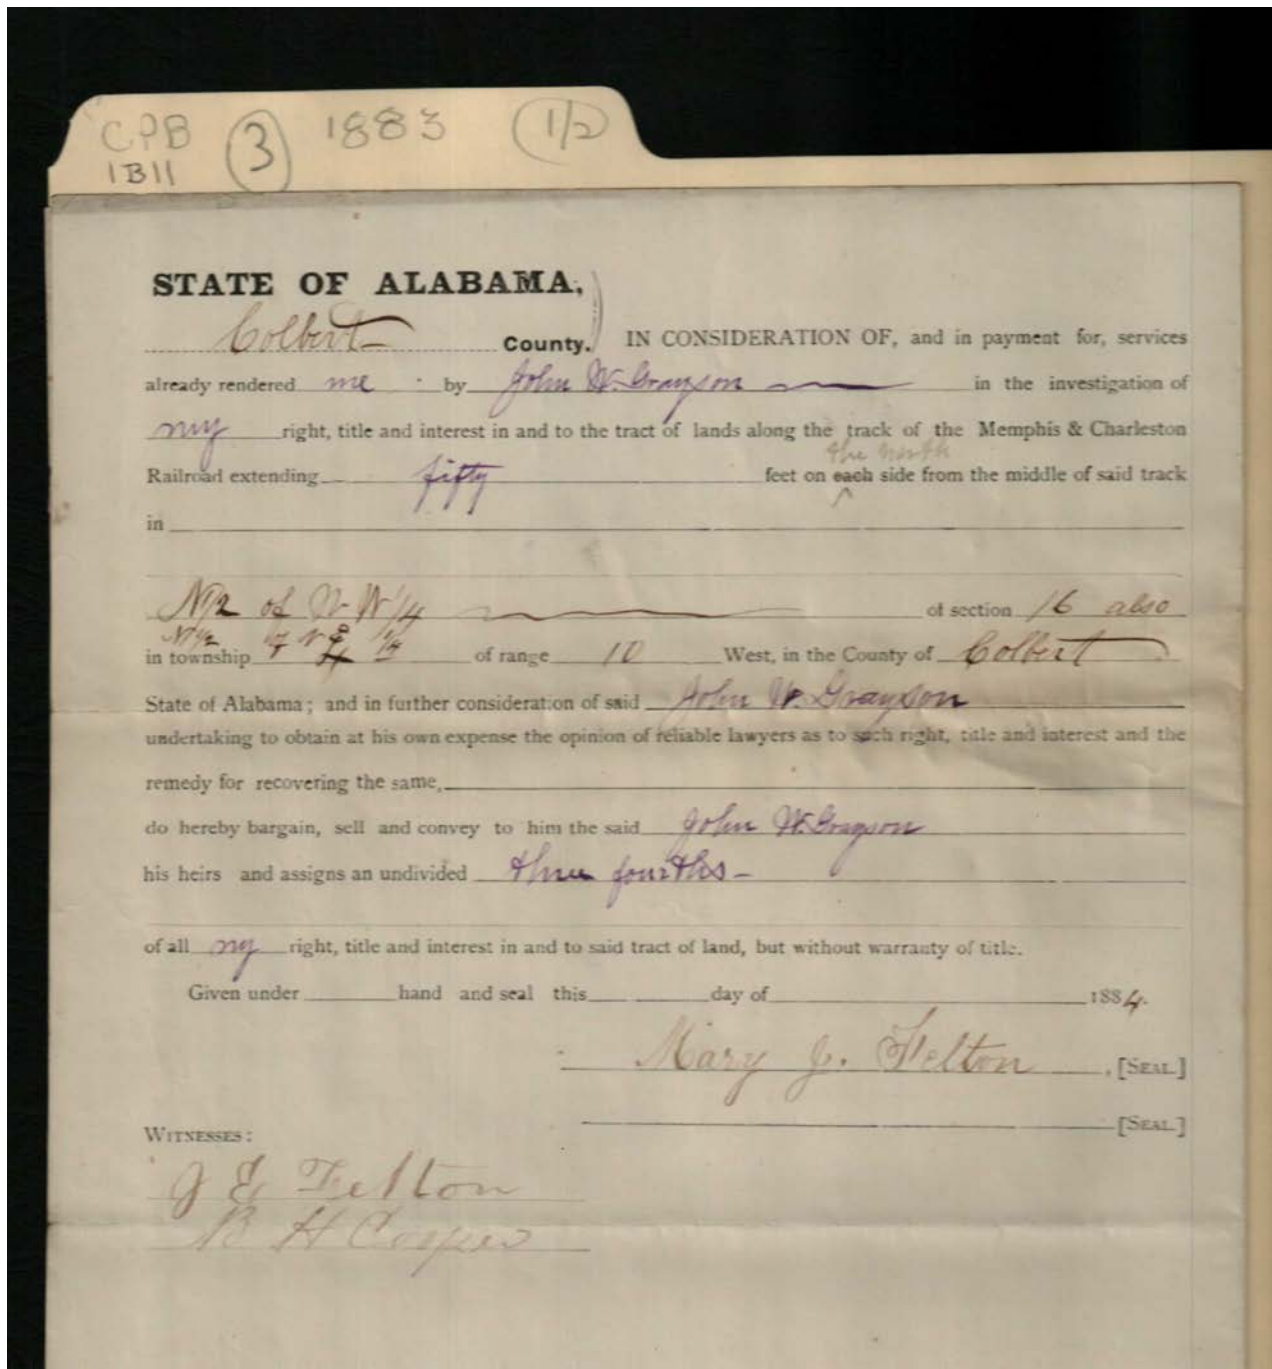 CPB ③ 1883 (1/2)
1B11
STATE OF ALABAMA,
Colbert County. IN CONSIDERATION OF, and in payment for, services
already rendered me by John W. Grayson in the investigation of
my right, title and interest in and to the tract of lands along the track of the Memphis & Charleston
the north
Railroad extending fifty feet on each side from the middle of said track
in
N1/2 of N W 1/4 of section 16 also
N 1/2 of N E 1/4
in township 4 of range 10 West, in the County of Colbert
State of Alabama; and in further consideration of said John W. Grayson
undertaking to obtain at his own expense the opinion of reliable lawyers as to such right, title and interest and the
remedy for recovering the same,
do hereby bargain, sell and convey to him the said John W. Grayson
his heirs and assigns an undivided three fourths -
of all my right, title and interest in and to said tract of land, but without warranty of title.
Given under hand and seal this day of 1884.
Mary J. Felton, [SEAL.]
[SEAL.]
WITNESSES:
J E Felton
B H Cooper